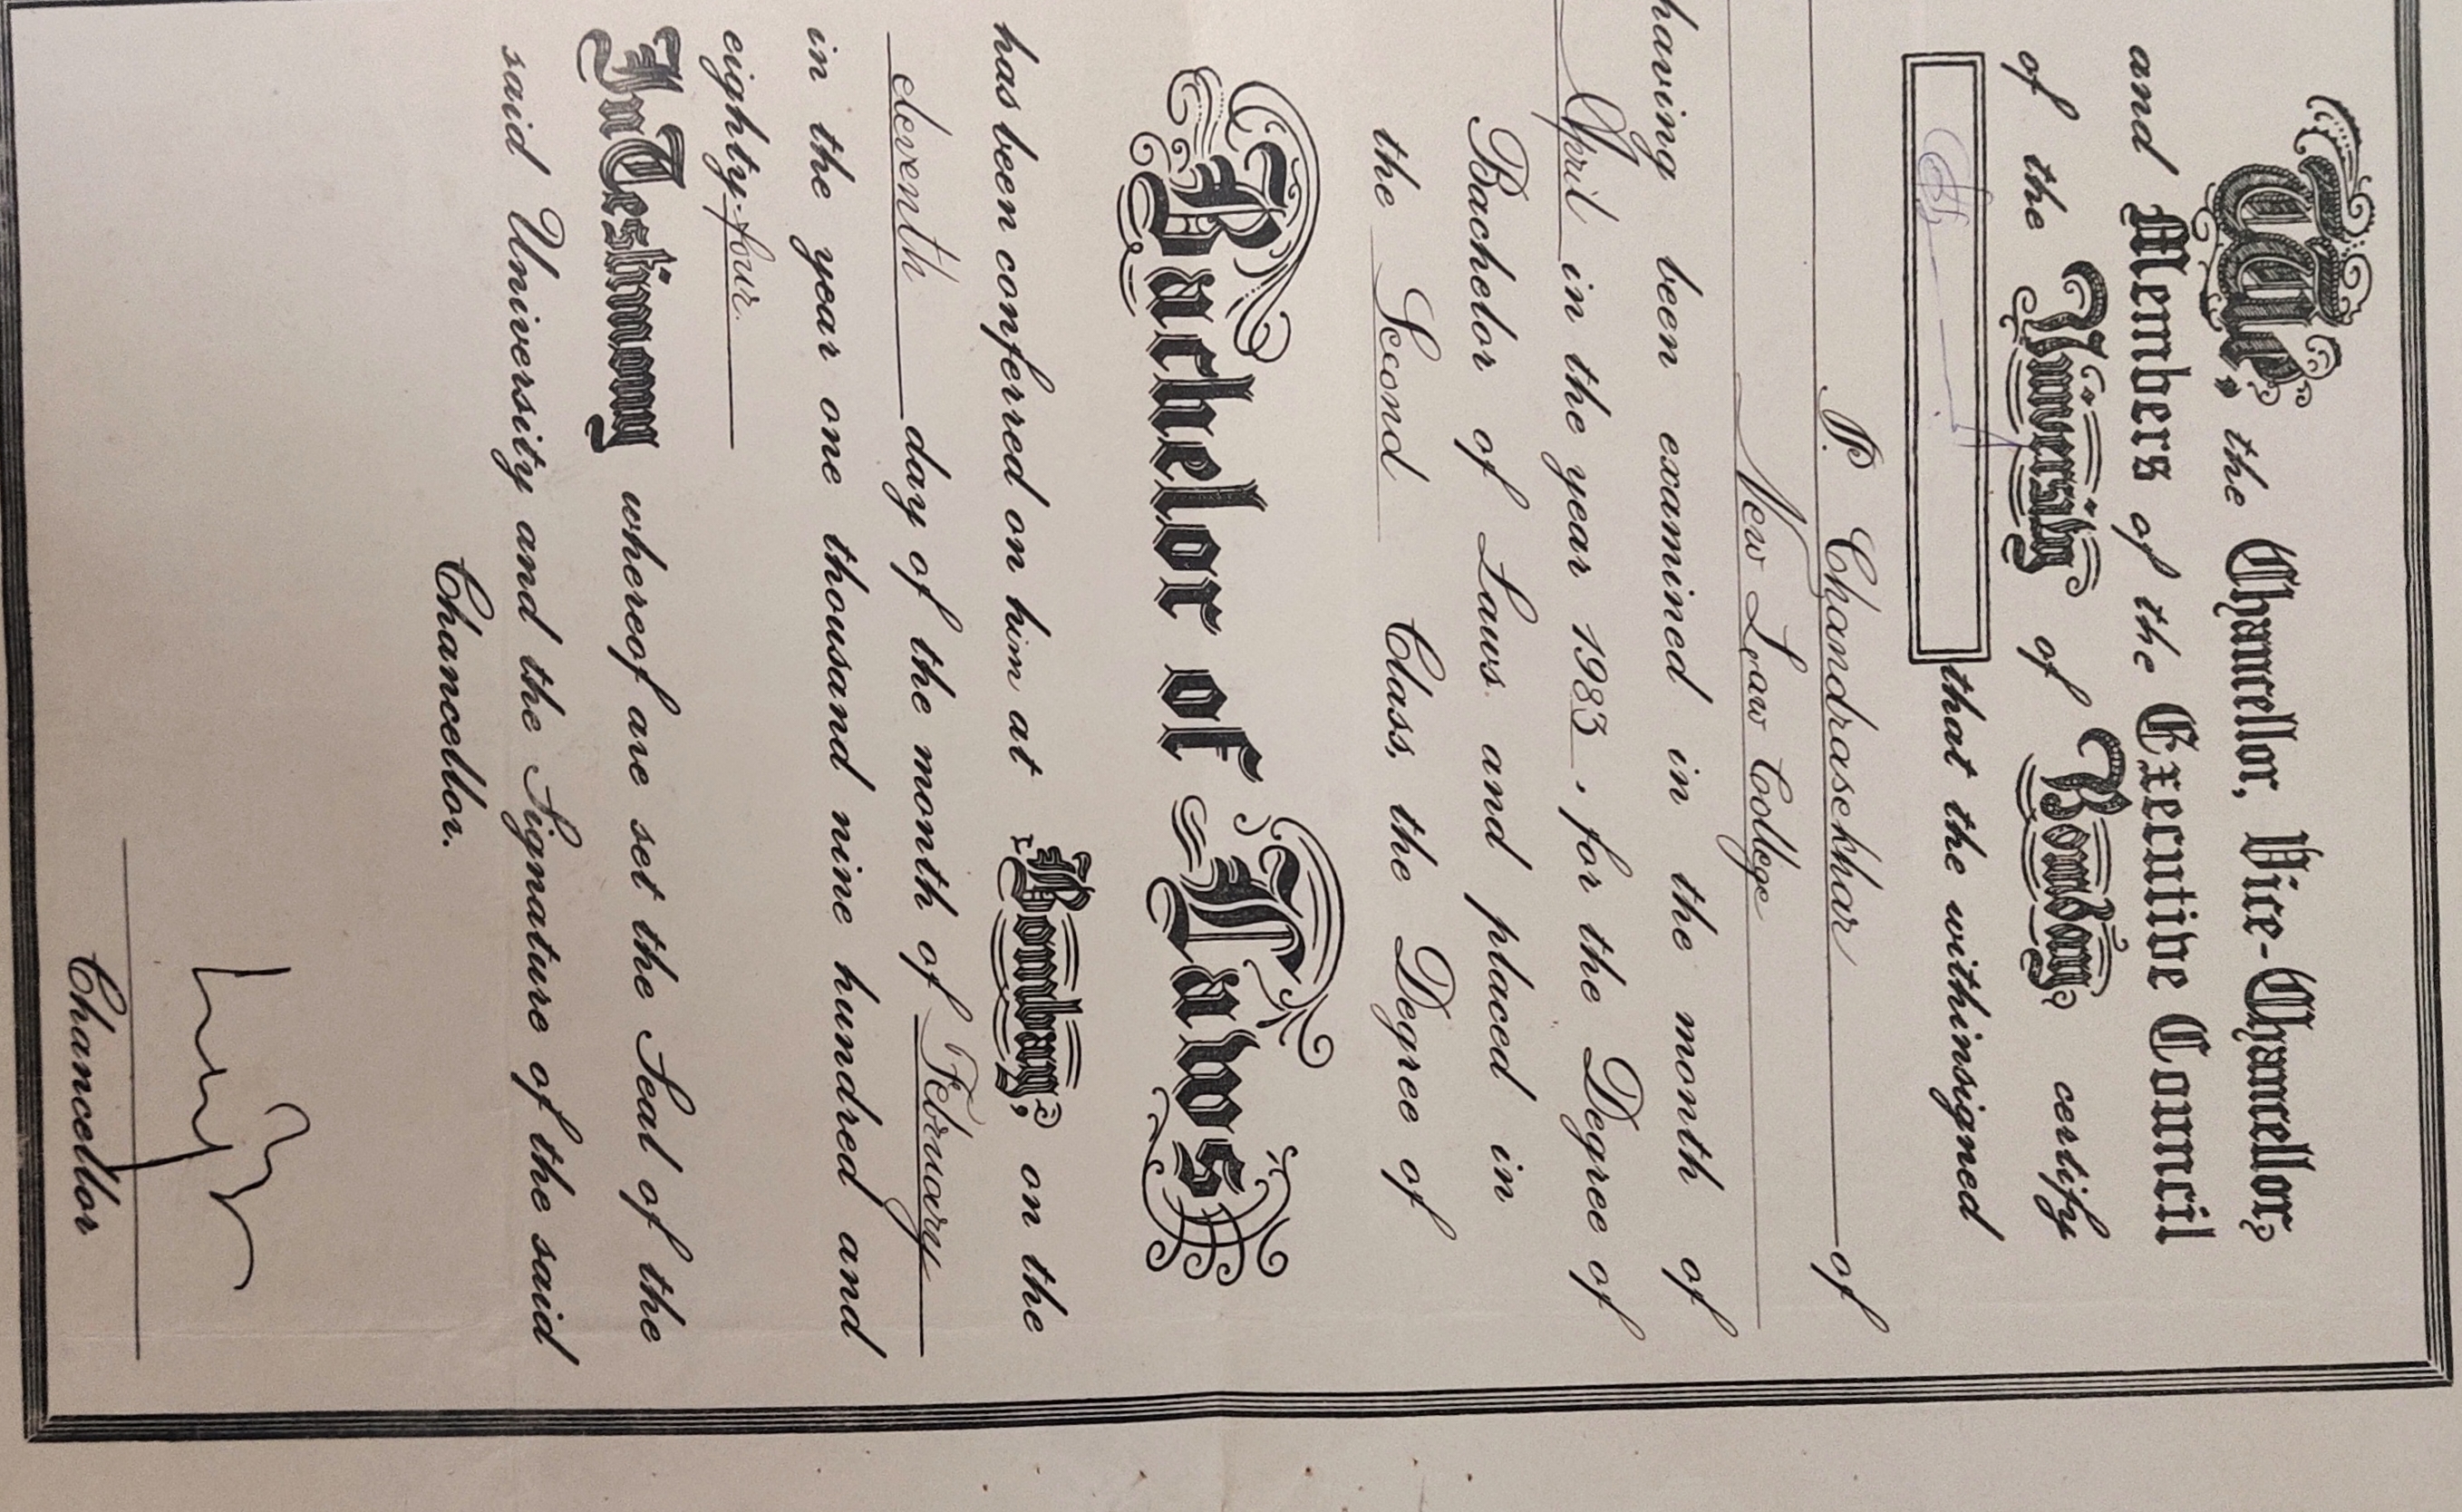 We, the Chancellor, Vice-Chancellor
and Members of the Executive Council
of the University of Bombay certify
that the withinsigned
P. Chandrasekhar of
New Law College
having been examined in the month of
April in the year 1983, for the Degree of
Bachelor of Laws and placed in
the Second Class, the Degree of
Bachelor of Laws
has been conferred on him at Bombay, on the
eleventh day of the month of February
in the year one thousand nine hundred and
eighty-four.
In Testimony whereof are set the Seal of the
said University and the Signature of the said
Chancellor.
Chancellor